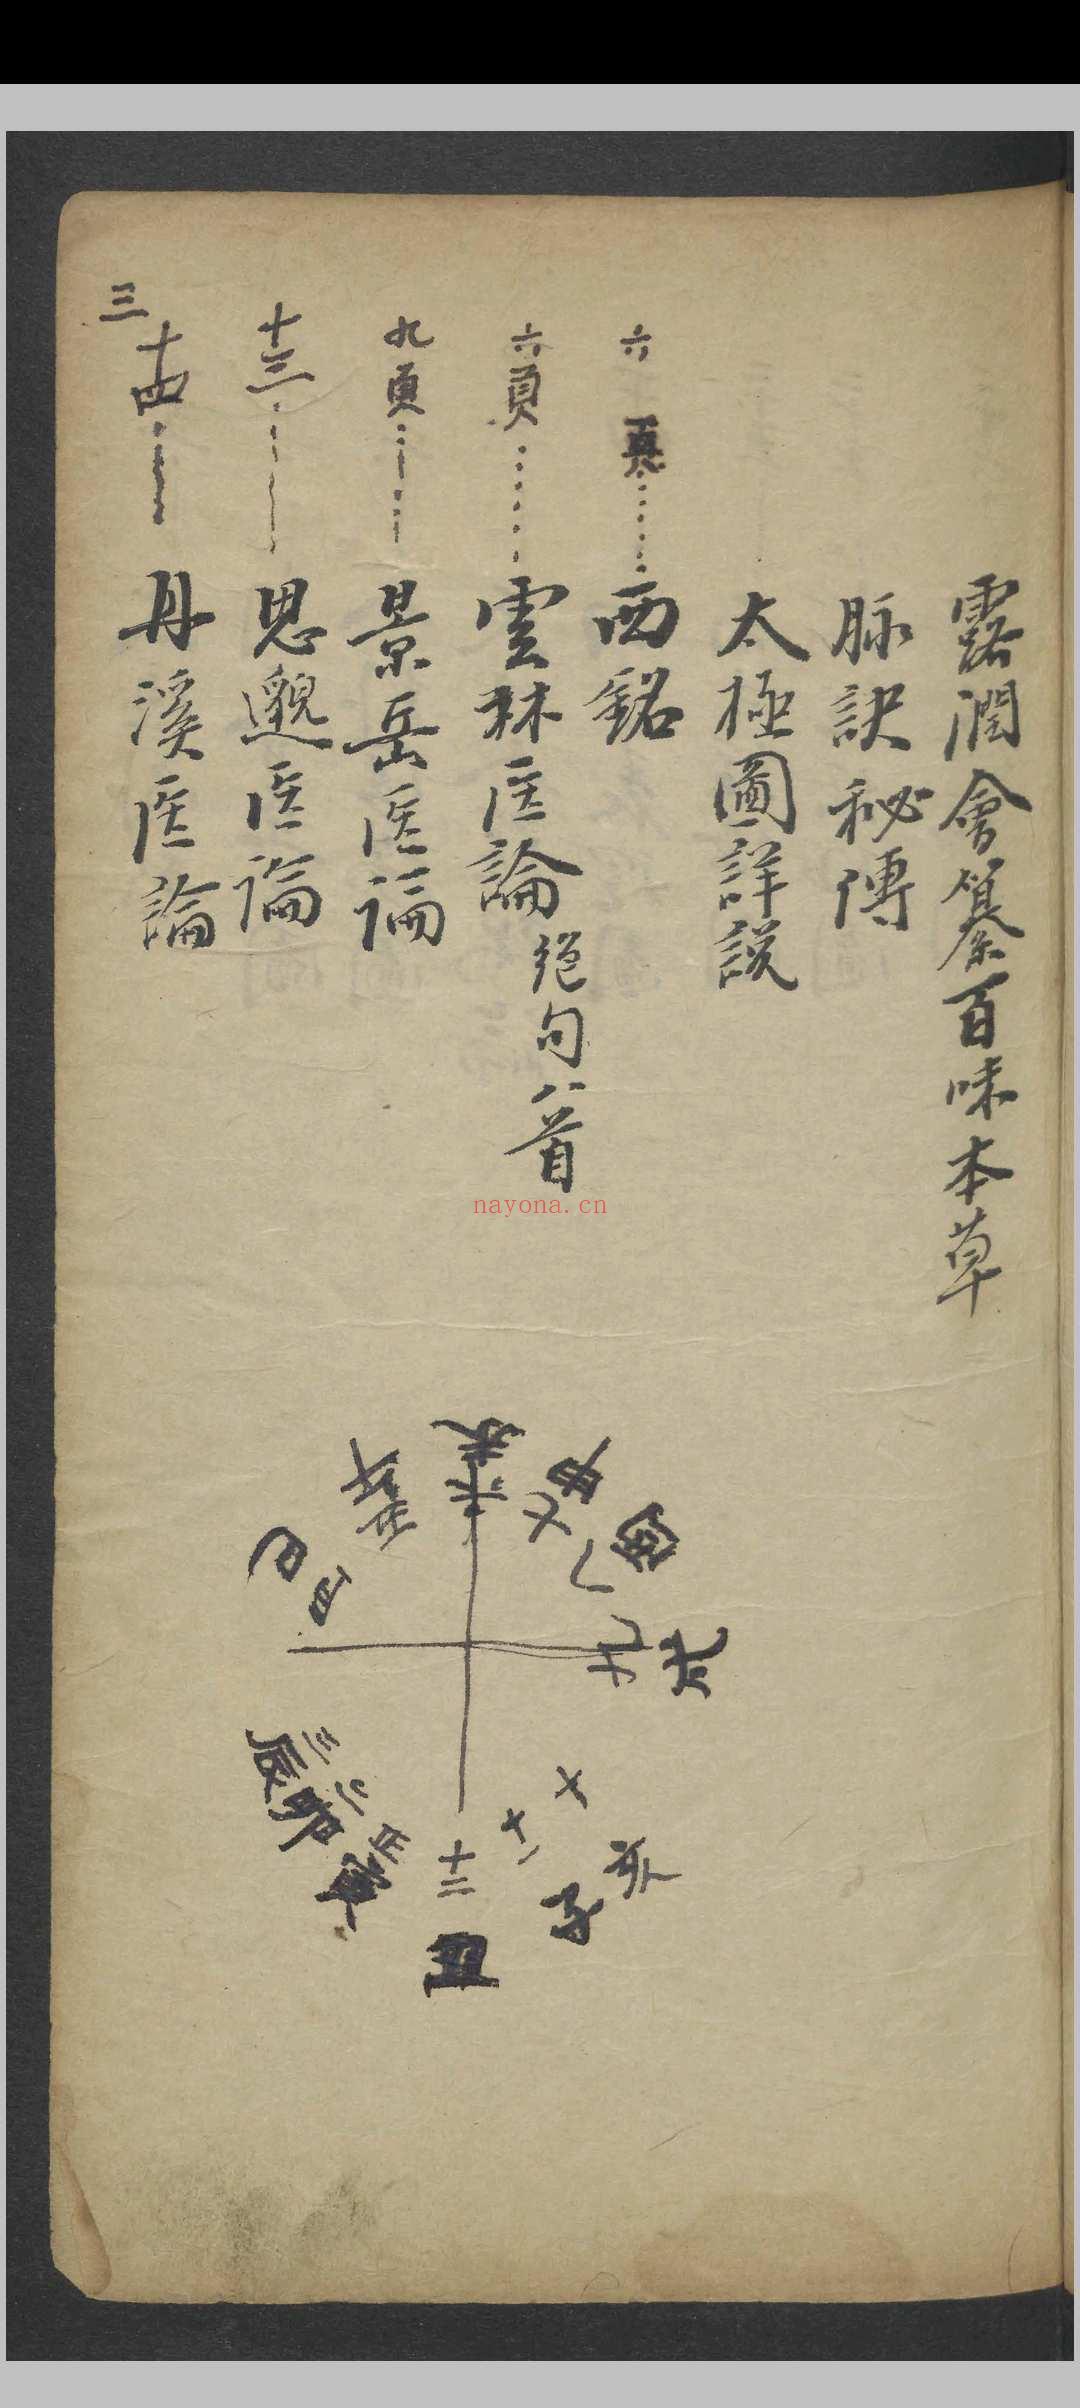 露潤會纂百味本草
脉訣秘傳
太極圖詳説
六頁西銘
六頁雲林医論绝句八首
九頁景岳医論
十三思邈医論
三十四丹溪医論
未
六
申
七
酉
八
戌
九
亥
十
子
十一
丑
十二
寅
正
卯
二
辰
三
巳
四
午
五
nayona.cn